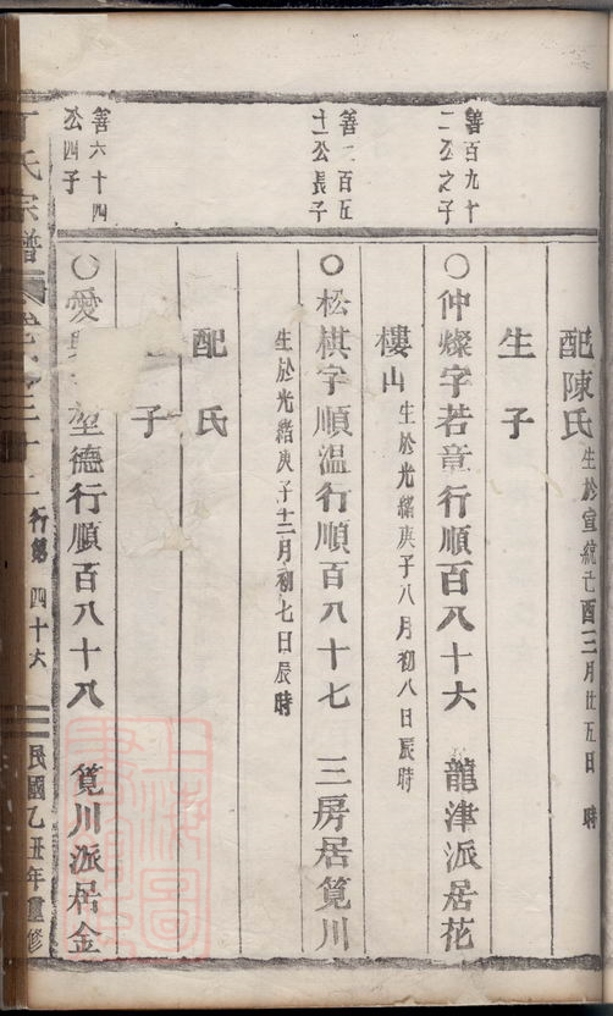 配陳氏生於宣統己酉三月廿五日　時
生子
善百九十二公之子
○仲燦字若章行順百八十六　龍津派居花
樓山生於光緒庚子八月初八日辰時
善二百五十一公長子
○松棋字順溫行順百八十七　三房居筧川
生於光緒庚子十二月初七日辰時
配氏
子
善六十四公四子
○愛　德行順百八十八　筧川派居金
氏宗譜
行第　四十六　民國乙丑年重修
上海圖書館藏